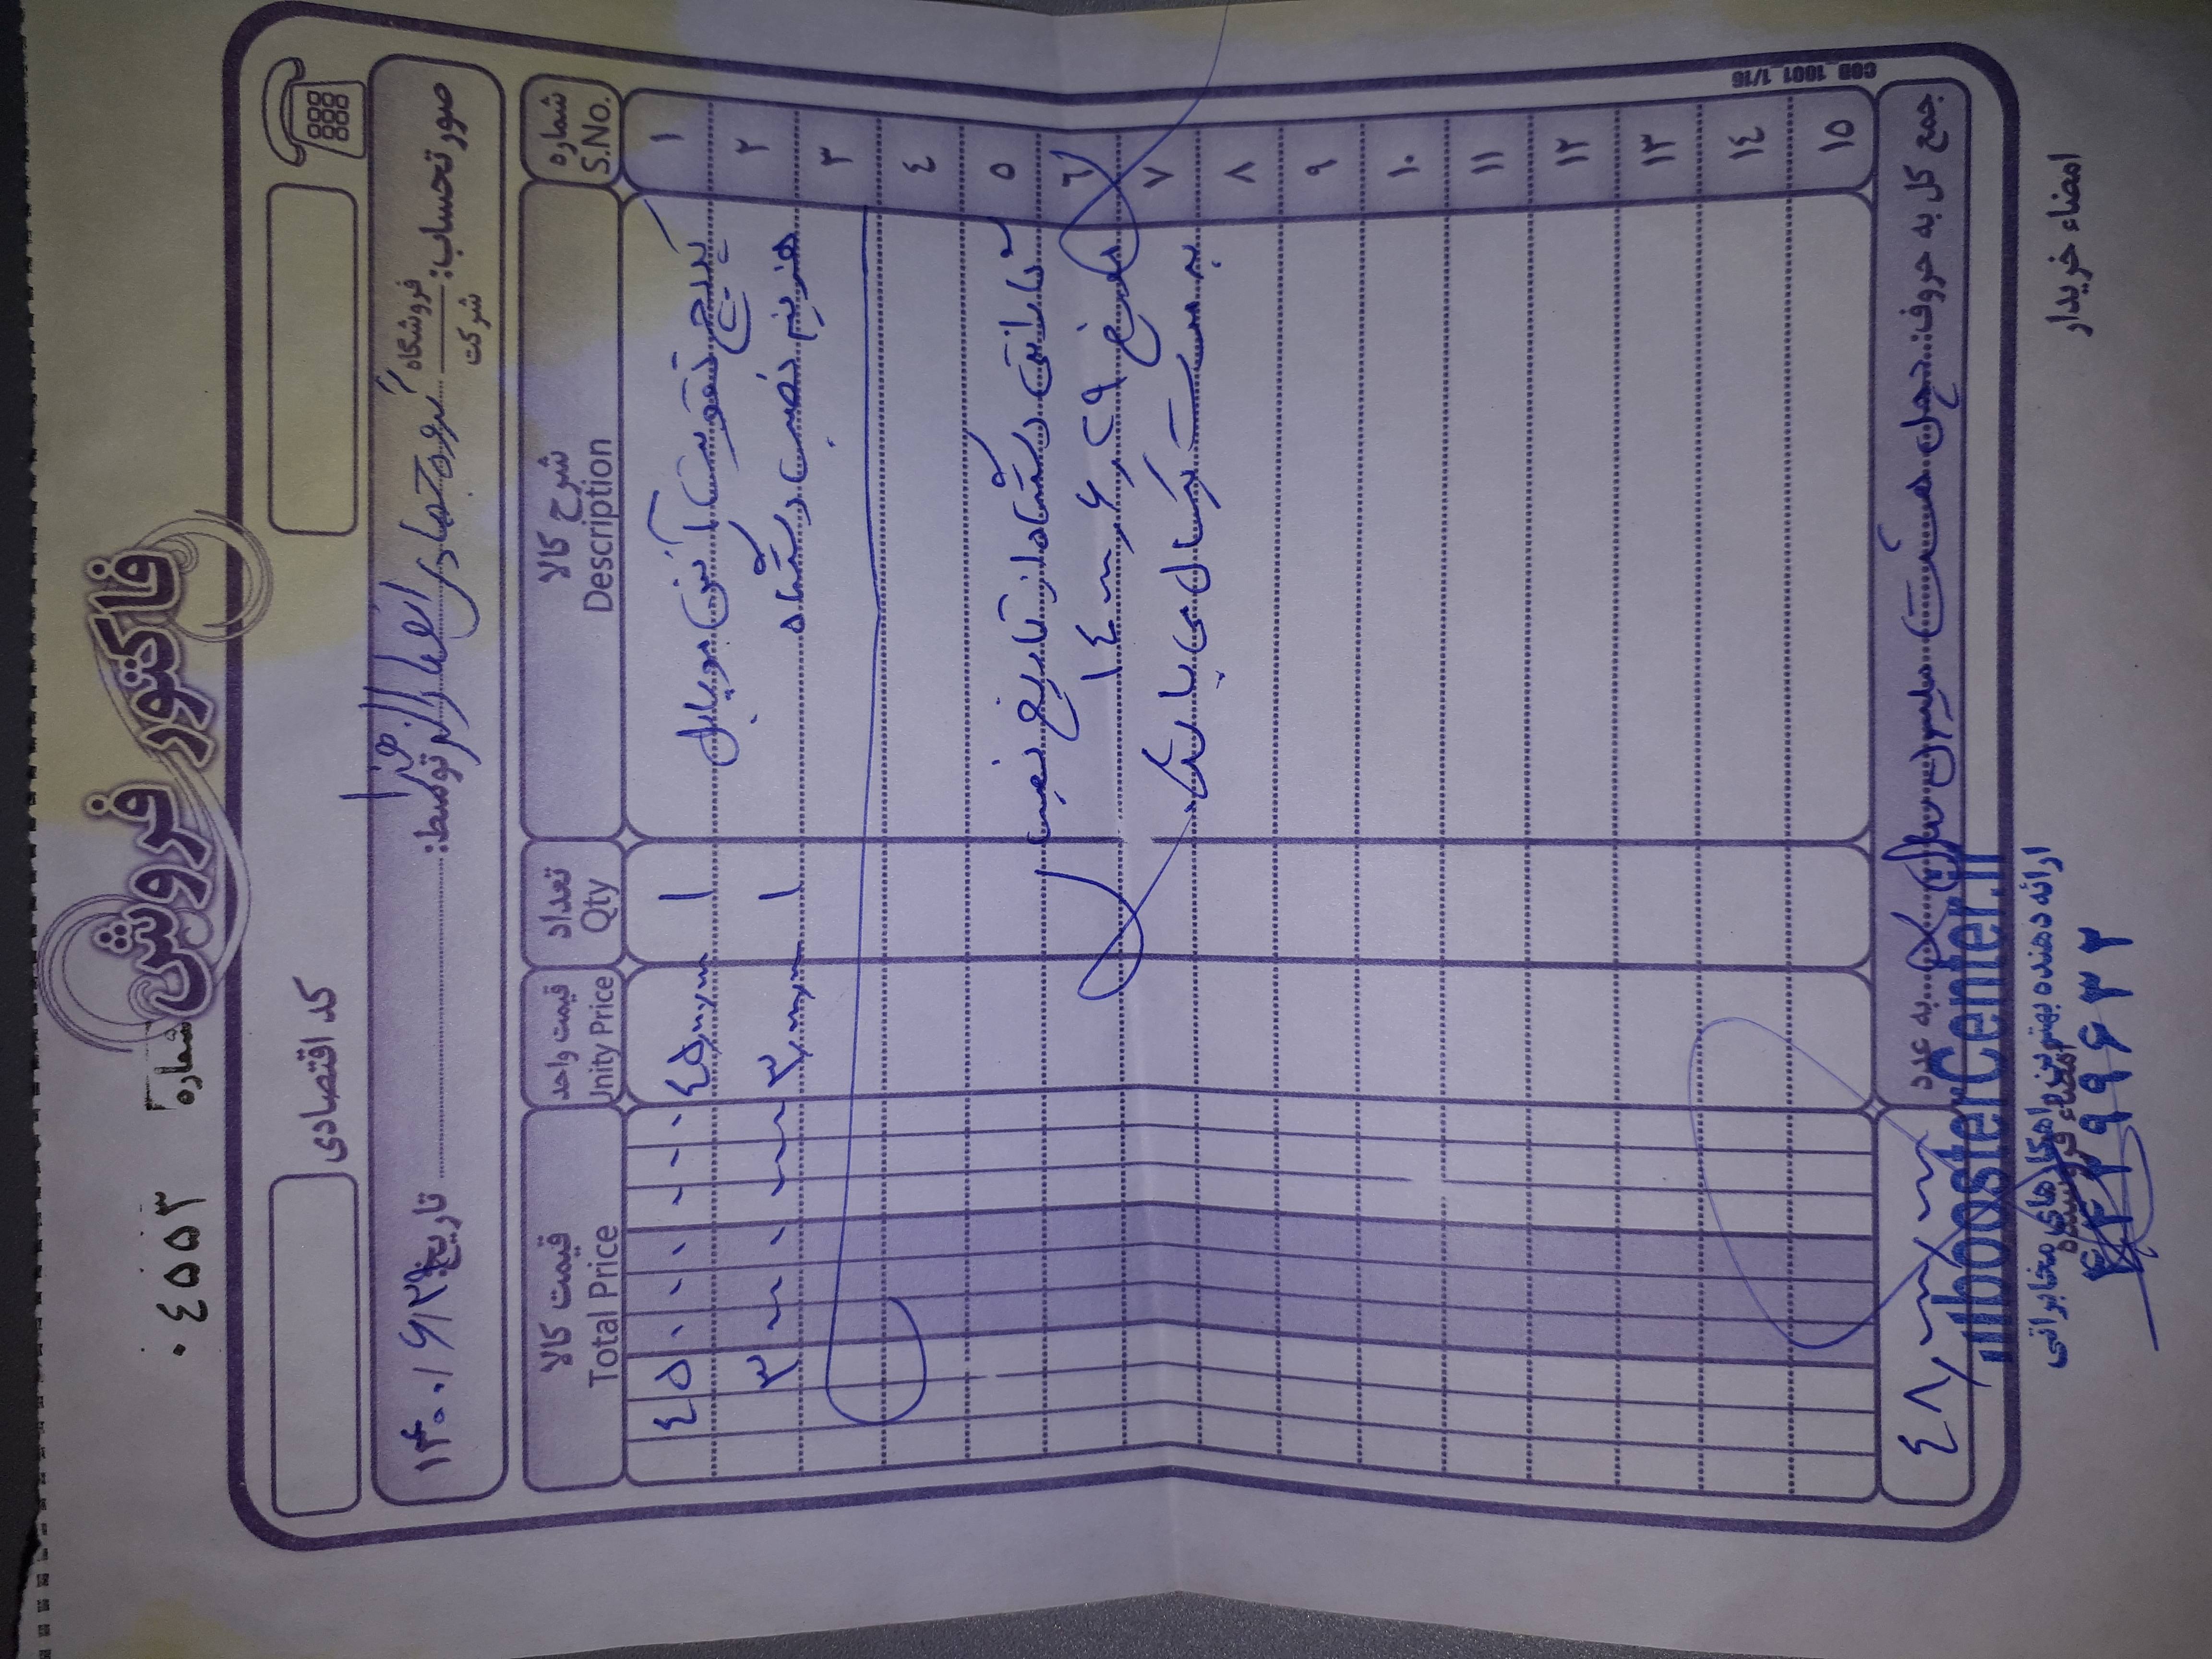 فاکتور فروش
شماره ۰۴۵۵۳
کد اقتصادی
صورتحساب: فروشگاه
شرکت
گروه جهادی انصار الزهرا
توسط:
تاریخ: ۱۴۰۰/۶/۲۹
شماره شرح کالا تعداد قیمت واحد قیمت کالا
S.No. Description Qty Unity Price Total Price
۱ پکیج تقویت آنتن موبایل ۱ ۴۵,۰۰۰,۰۰۰ ۴۵۰۰۰۰۰۰
۲ هزینه نصب دستگاه ۱ ۳,۰۰۰,۰۰۰ ۳۰۰۰۰۰۰
۳
۴
۵ گارانتی دستگاه از تاریخ نصب
۶ مورخ ۱۴۰۰/۶/۲۹
۷ به مدت یکسال می باشد
۸
۹
۱۰
۱۱
۱۲
۱۳
۱۴
۱۵
جمع کل به حروف: چهل هشت میلیون ریال به عدد ۴۸,۰۰۰,۰۰۰
COD_1001_1/16
boosterCenter.ir
ارائه دهنده بهترین راهکارهای مخابراتی
امضاء خریدار امضاء فروشنده